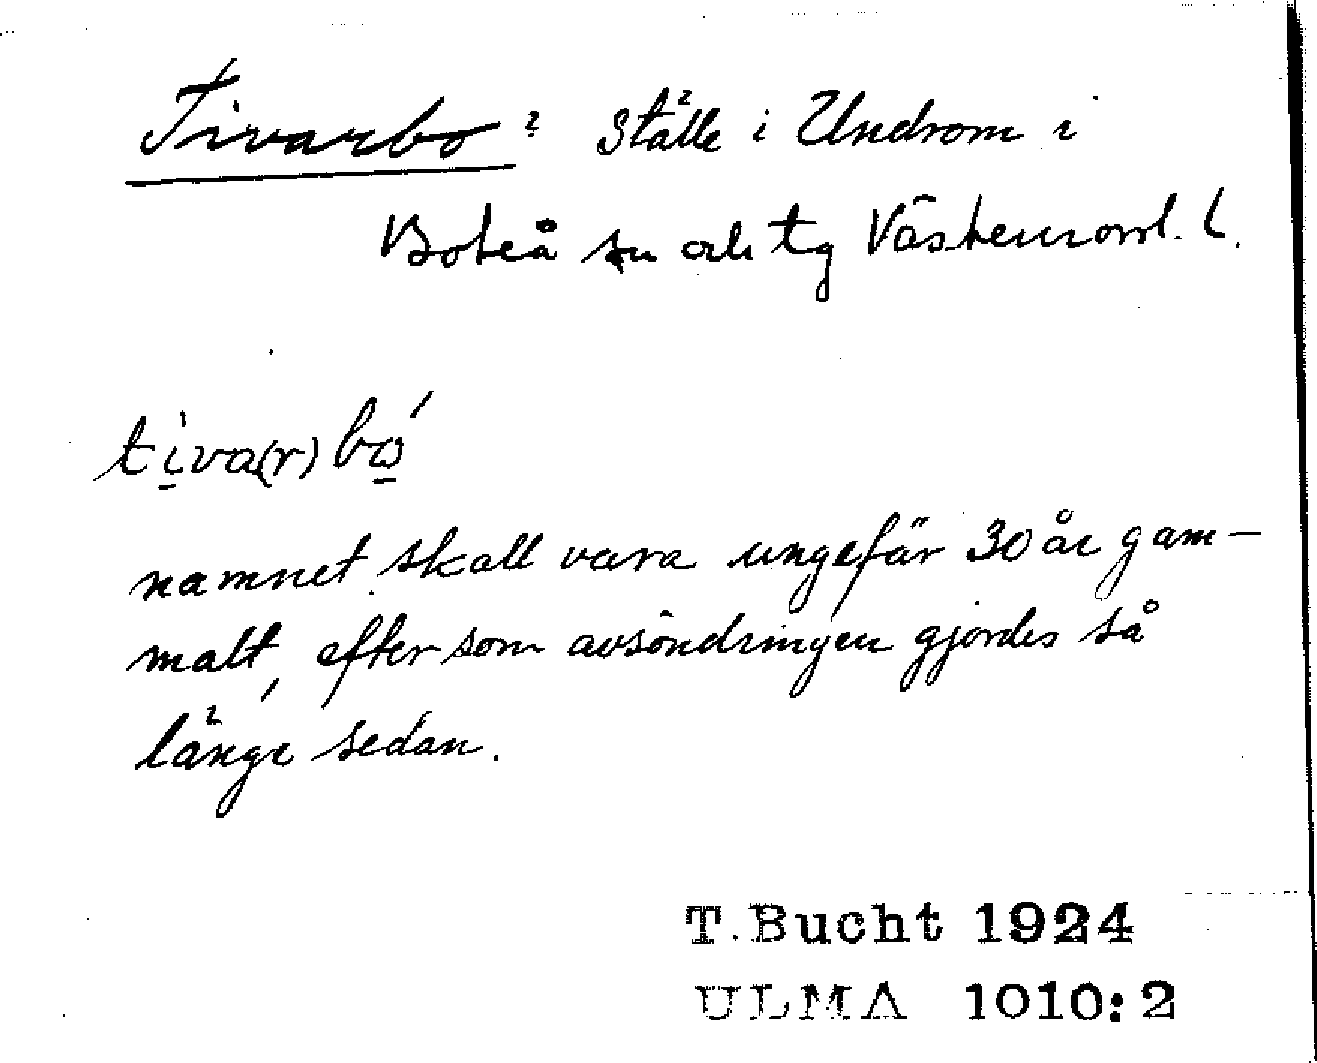 Tivarbo? Ställe i Undrom i
Boteå sn och tg Västernorrl. L.
tiva(r)bó
namnet skall vara ungefär 30 år gam-
malt, eftersom avsöndringen gjordes så
länge sedan.
T. Bucht 1924
ULMA 1010:2